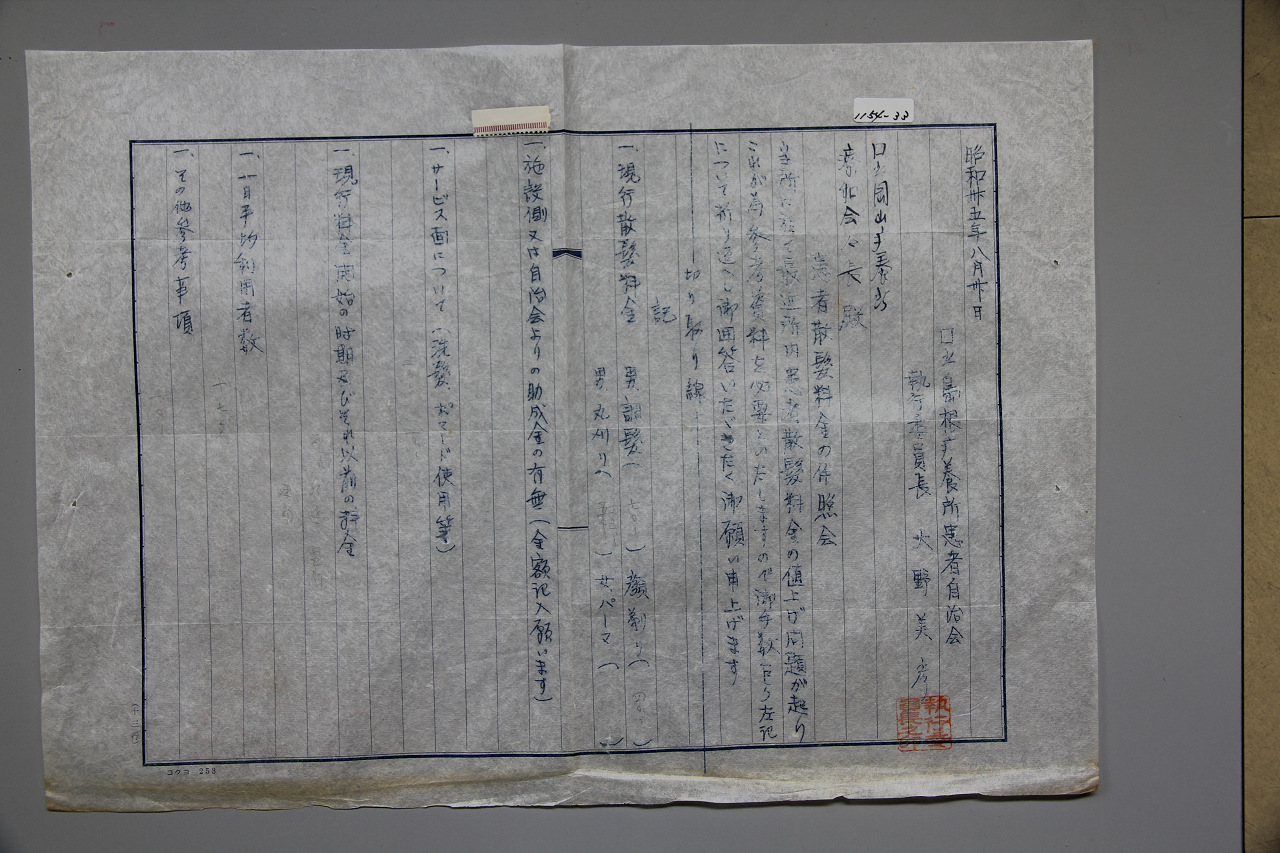 1154-33
昭和卅五年八月卅日
国立島根療養所患者自治会
執行委員長 大野美彦
国立岡山療養所
会々長殿
患者散髪料金の件照会
当所に於て最近所内患者散髪料金の値上げ問題が起り
これが為参考資料を必要といたしますので御手数乍ら左記
について折り返し御回答いただきたく御願い申上げます
切り取り線
記
一、現行散髪料金 男、調髪( ) 顔剃り( )
男、丸刈り( ) 女、パーマ( )
一、施設側又は自治会よりの助成金の有無(金額記入願います)
一、サービス面について(洗髪、ポマード使用等)
一、現行料金開始の時期及びそれ以前の料金
一、一日平均利用者数
一、その他参考事項
コクヨ 253